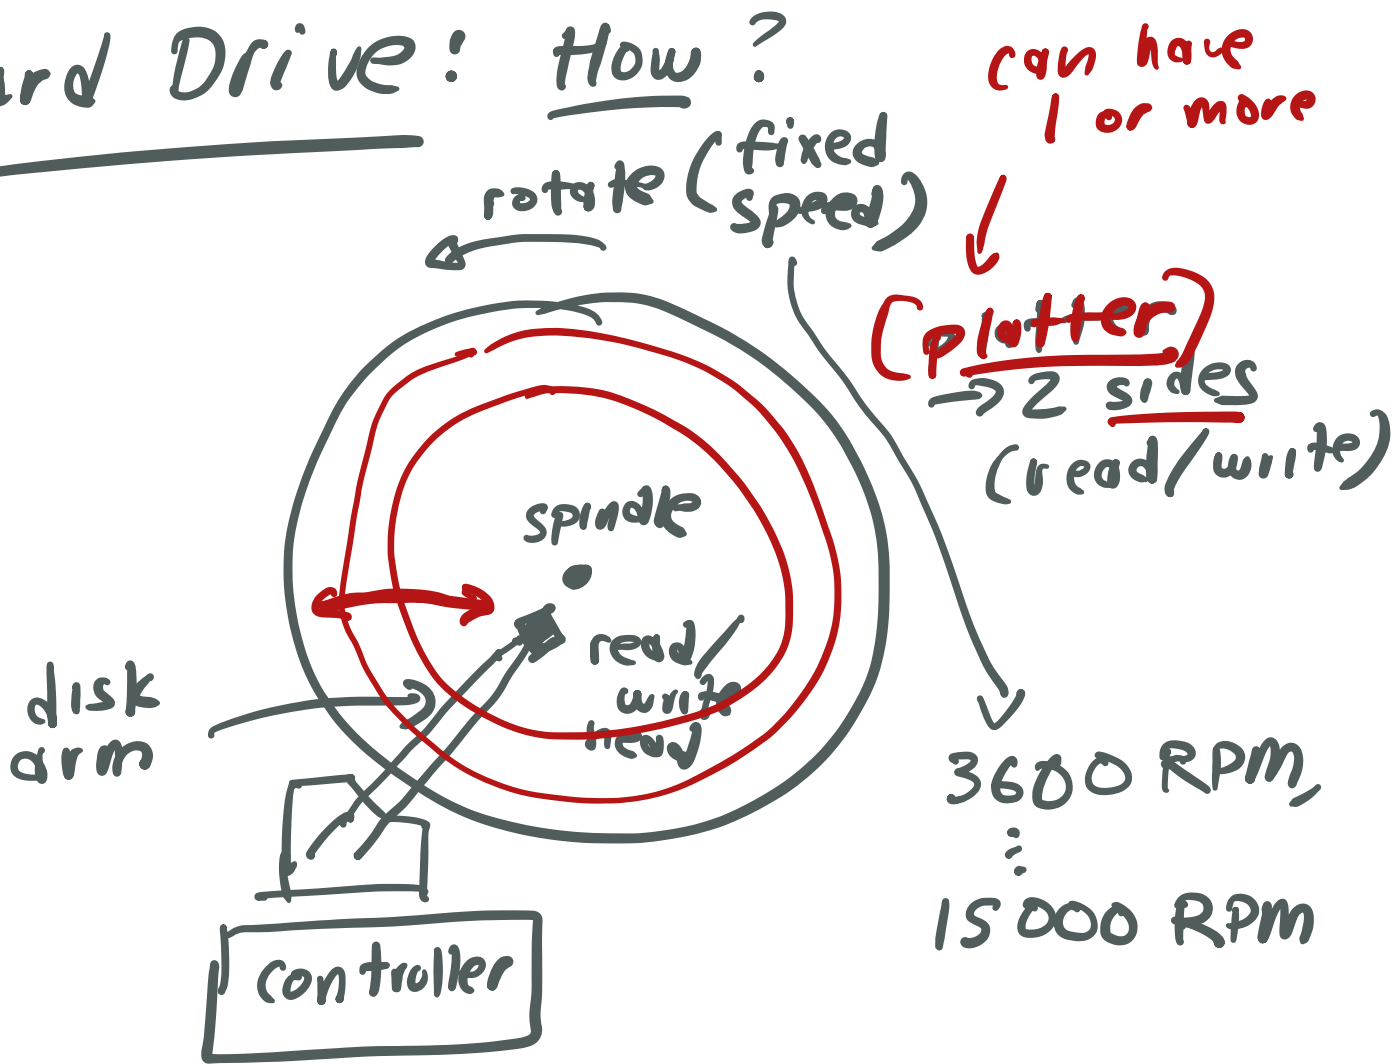 ard Drive: How?
can have
1 or more
rotate (fixed
speed)
(platter)
→ 2 sides
(read/write)
spindle
read/
write
head
disk
arm
3600 RPM,
⋮
15000 RPM
controller